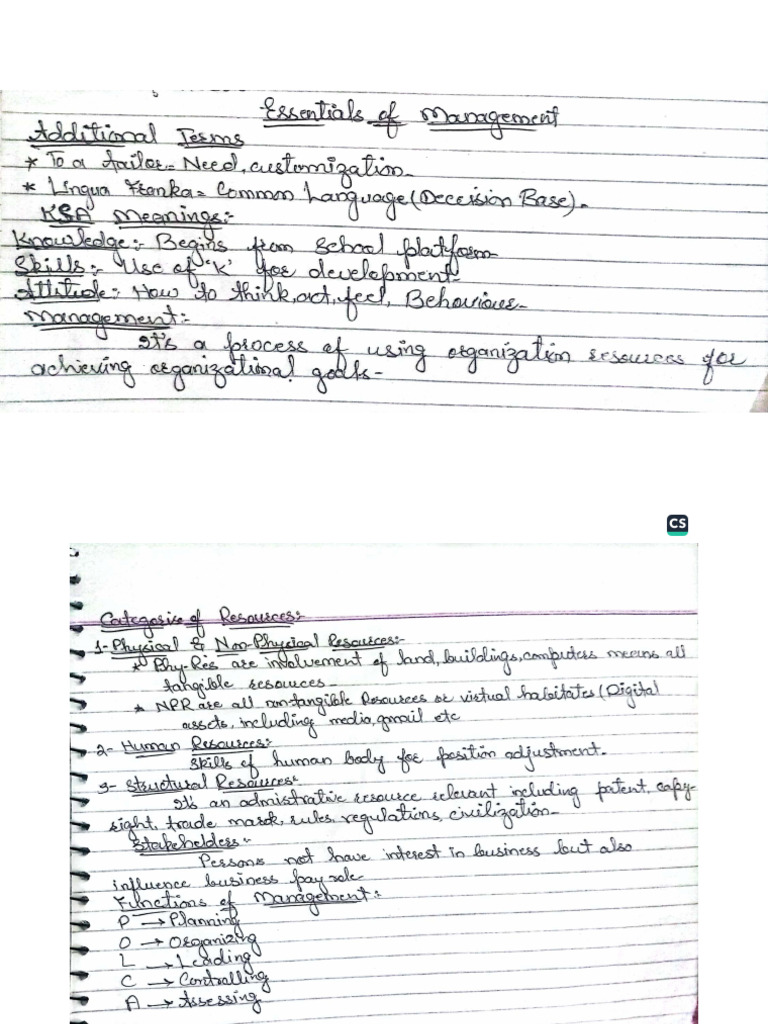 Essentials of Management
Additional Terms
* To a tailor = Need, customization.
* Lingua Franka = Common Language (Deccision Base).
KSA Meanings:-
Knowledge:- Begins from school platform
Skills:- Use of 'K' for development
Attitude:- How to think, act, feel, Behaviour
Management:-
It's a process of using organization resources for
achieving organizational goals-
CS
Categories of Resources:-
1- Physical & Non-Physical Resources:-
* Phy-Res are involvement of land, buildings, computers means all
tangible resources-
* NPR are all non-tangible Resources or virtual (Digital
assets, including media, gmail etc
2- Human Resources:-
Skills of human body for position adjustment.
3- Structural Resources:-
It's an admistrative resource relevant including patent, copy-
right, trade mark, rules, regulations, civilization-
Stakeholders:-
Persons not have interest in business but also
influence business pay role
Functions of Management:-
P → Planning
O → Organizing
L → Leading
C → Controlling
A → Assessing